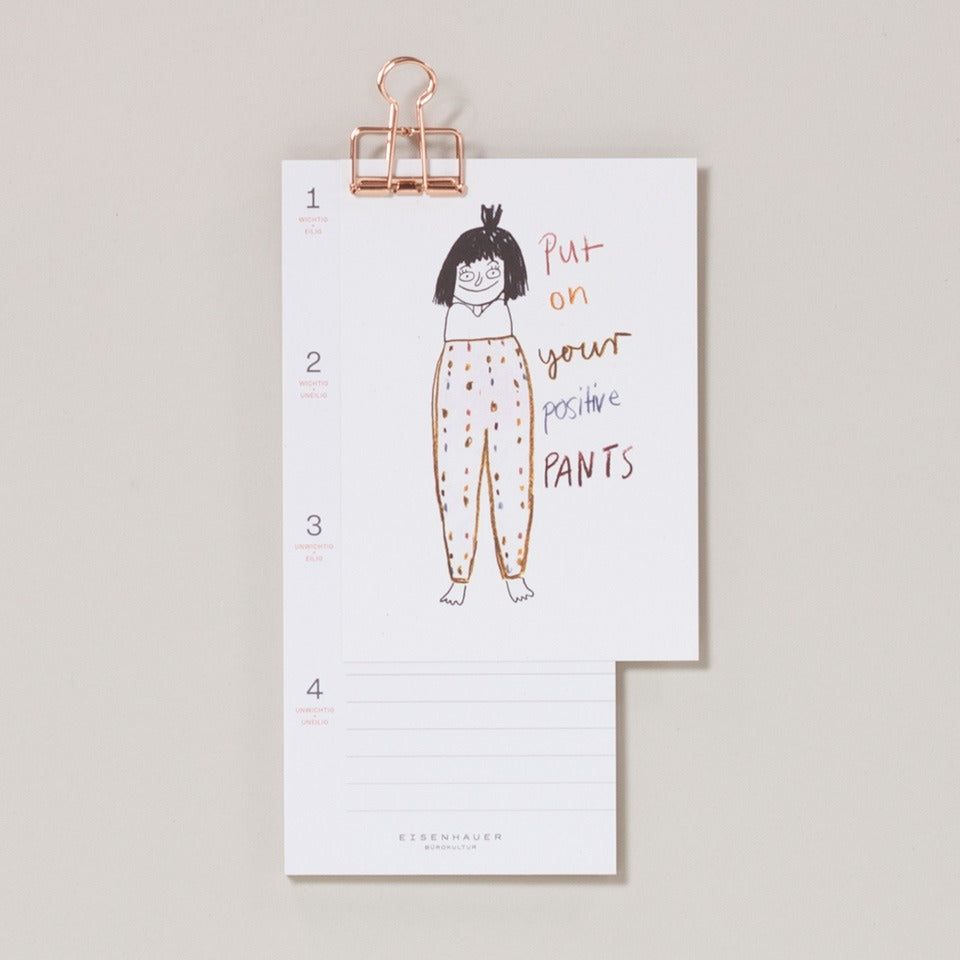 1
WICHTIG
+
EILIG
2
WICHTIG
+
UNEILIG
3
UNWICHTIG
+
EILIG
4
UNWICHTIG
+
UNEILIG
Put
on
your
positive
PANTS
EISENHAUER
BÜROKULTUR